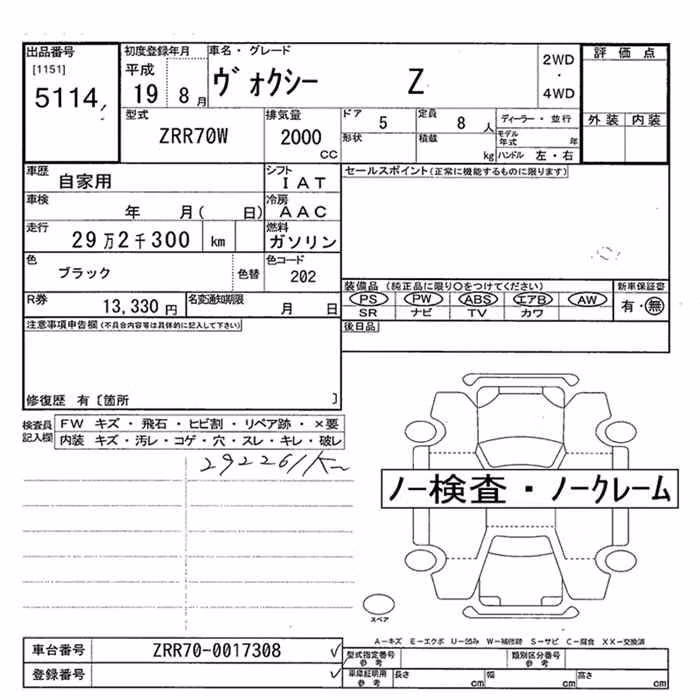 出品番号
[1151]
5114
初度登録年月
平成
19 8 月
車名・グレード
ヴォクシー Z
2WD
・
4WD
評価点
外装 内装
型式
ZRR70W
排気量
2000
CC
ドア 5
形状
定員 8 人
積載 kg
ディーラー・並行
モデル年式 年
ハンドル 左・右
車歴
自家用
シフト
IAT
セールスポイント(正常に機能するものに限ります)
車検
年 月( 日)
冷房
AAC
走行
29万2千300 km
燃料
ガソリン
色
ブラック
色替
色コード
202
装備品 (純正品に限り○をつけてください)
新車保証書
PS PW ABS エアB AW
有・無
SR ナビ TV カワ
R券
13,330 円
名変通知期限
月 日
後日品
注意事項申告欄(不具合内容等は具体的に記入して下さい)
修復歴 有〔箇所 〕
検査員
記入欄
FW キズ・飛石・ヒビ割・リペア跡・×要
内装 キズ・汚レ・コゲ・穴・スレ・キレ・破レ
292261K
ノー検査・ノークレーム
スペア
A-キズ E-エクボ U-凹み W-補修跡 S-サビ C-腐食 XX-交換済
車台番号
ZRR70-0017308 ✓
型式指定番号
参考
類別区分番号
参考
登録番号
✓
車庫証明用
参考
長さ cm
幅 cm
高さ cm